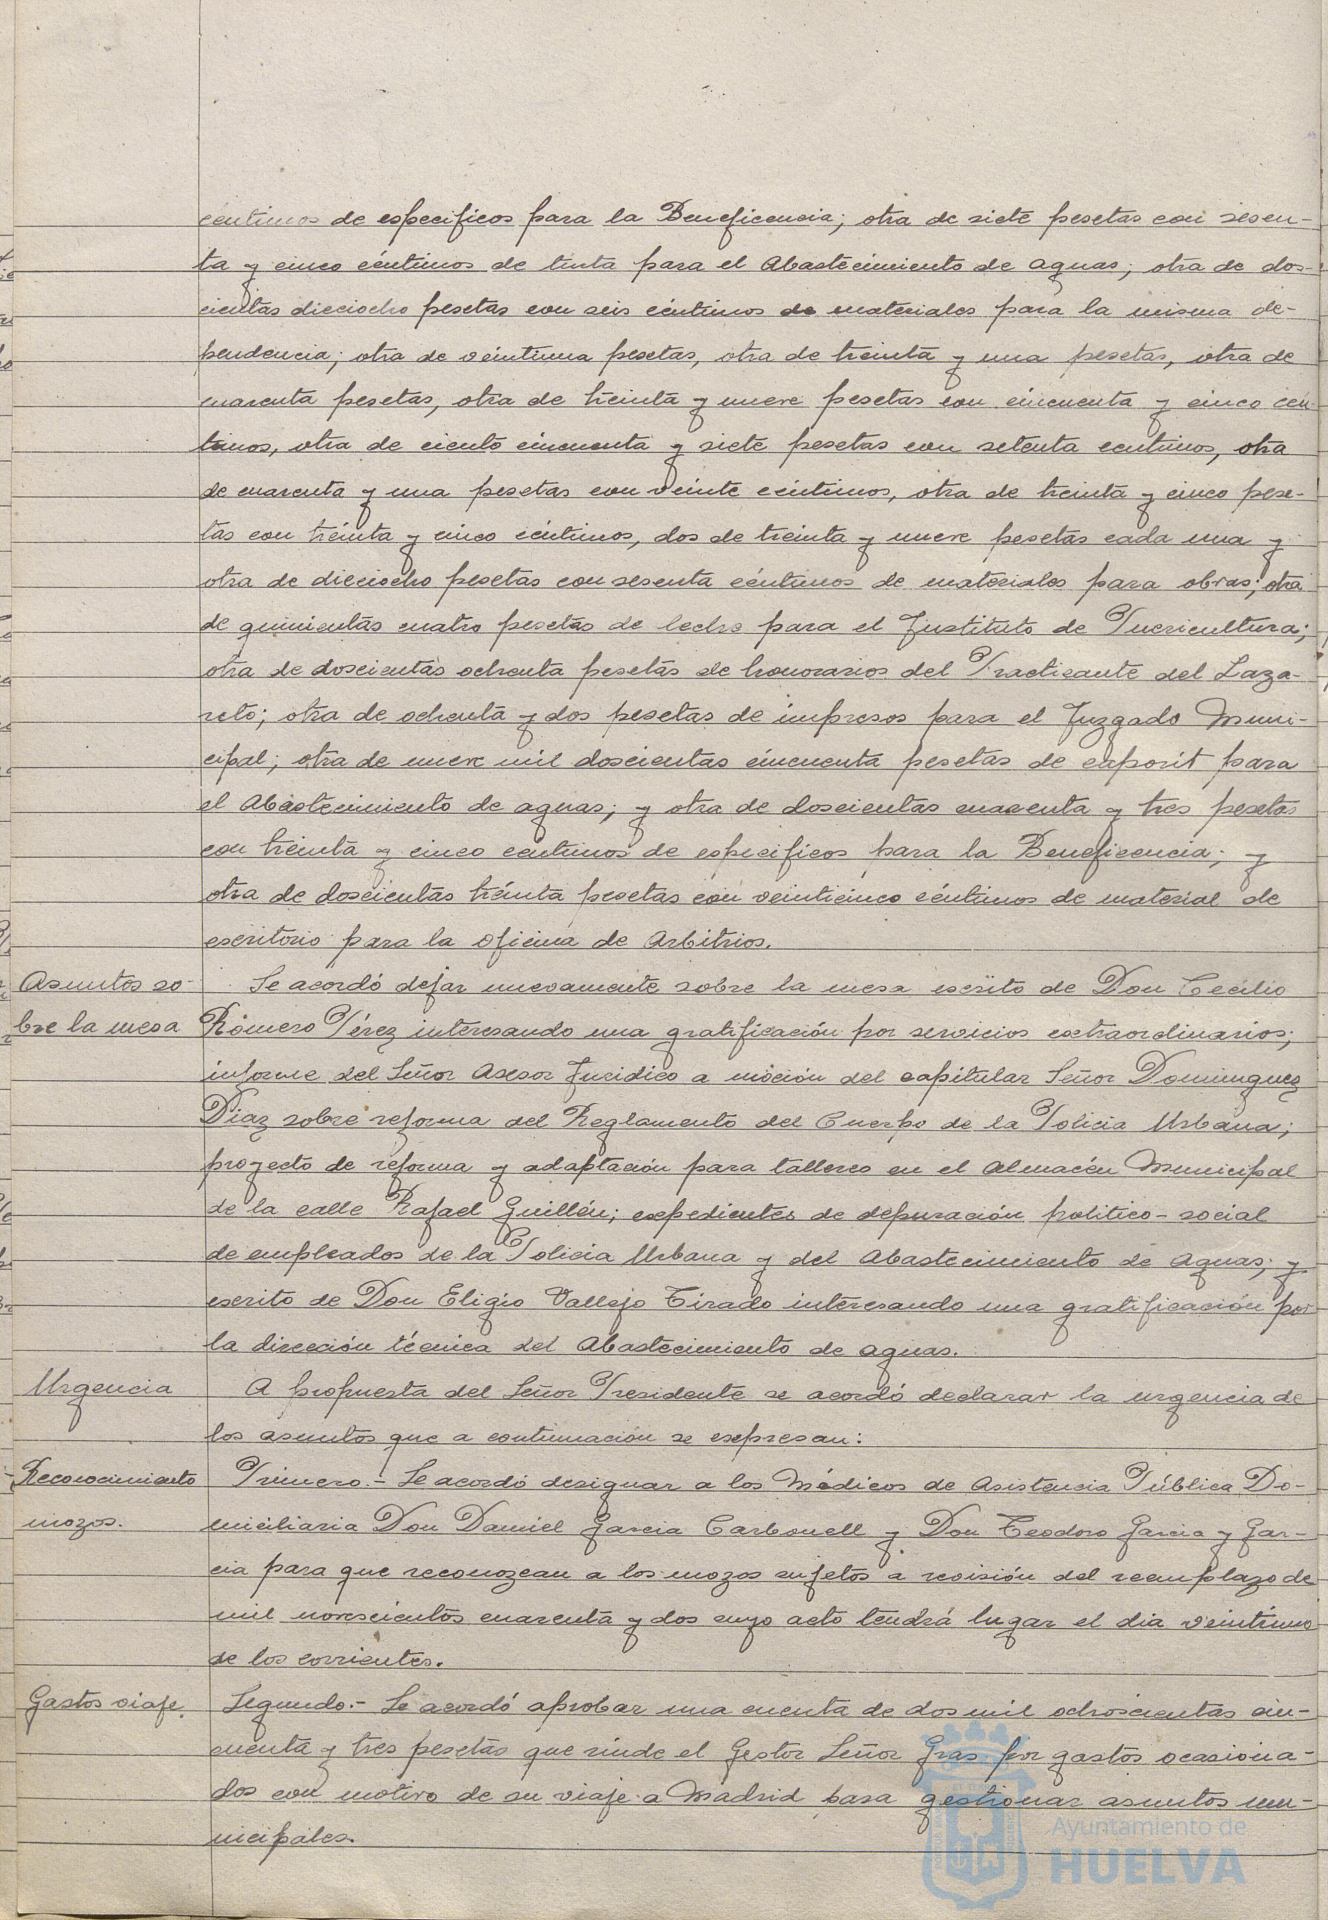 centimos de especificos para la Beneficencia; otra de siete pesetas con sesen-
ta y cinco céntimos de tinta para el Abastecimiento de aguas; otra de dos-
cientas dieciocho pesetas con seis céntimos de materiales para la misma de-
pendencia; otra de veintiuna pesetas, otra de treinta y una pesetas, otra de
cuarenta pesetas, otra de treinta y nueve pesetas con cincuenta y cinco cen-
timos, otra de ciento cincuenta y siete pesetas con setenta centimos, otra
de cuarenta y una pesetas con veinte céntimos, otra de treinta y cinco pese-
tas con treinta y cinco céntimos, dos de treinta y nueve pesetas cada una y
otra de dieciocho pesetas con sesenta céntimos de materiales para obras; otra
de quinientas cuatro pesetas de leche para el Instituto de Puericultura;
otra de doscientas ochenta pesetas de honorarios del Practicante del Laza-
reto; otra de ochenta y dos pesetas de impresos para el Juzgado Muni-
cipal; otra de nueve mil doscientas cincuenta pesetas de caporit para
el Abastecimiento de aguas; y otra de doscientas cuarenta y tres pesetas
con treinta y cinco centimos de especificos para la Beneficencia; y
otra de doscientas treinta pesetas con veinticinco céntimos de material de
escritorio para la oficina de Arbitrios.
Asuntos so-
bre la mesa
Se acordó dejar nuevamente sobre la mesa escrito de Don Cecilio
Romero Pérez interesando una gratificación por servicios extraordinarios;
informe del Señor Asesor Juridico a moción del capitular Señor Dominguez
Diaz sobre reforma del Reglamento del Cuerpo de la Policia Urbana;
proyecto de reforma y adaptación para talleres en el Almacén Municipal
de la calle Rafael Guillén; expedientes de depuración politico-social
de empleados de la Policia Urbana y del Abastecimiento de Aguas; y
escrito de Don Eligio Vallejo Tirado interesando una gratificación por
la dirección técnica del Abastecimiento de aguas.
Urgencia
A propuesta del Señor Presidente se acordó declarar la urgencia de
los asuntos que a continuación se expresan:
Reconocimiento
mozos.
Primero.- Se acordó designar a los Médicos de Asistencia Pública Do-
miciliaria Don Daniel Garcia Carbonell y Don Teodoro Garcia y Gar-
cia para que reconozcan a los mozos sujetos a revisión del reemplazo de
mil novescientos cuarenta y dos cuyo acto tendrá lugar el dia veintiuno
de los corrientes.
Gastos viaje.
Segundo.- Se acordó aprobar una cuenta de dos mil ochoscientas cin-
cuenta y tres pesetas que rinde el Gestor Señor Gras por gastos ocasiona-
dos con motivo de su viaje a Madrid para gestionar asuntos mu-
nicipales.
Ayuntamiento de
HUELVA